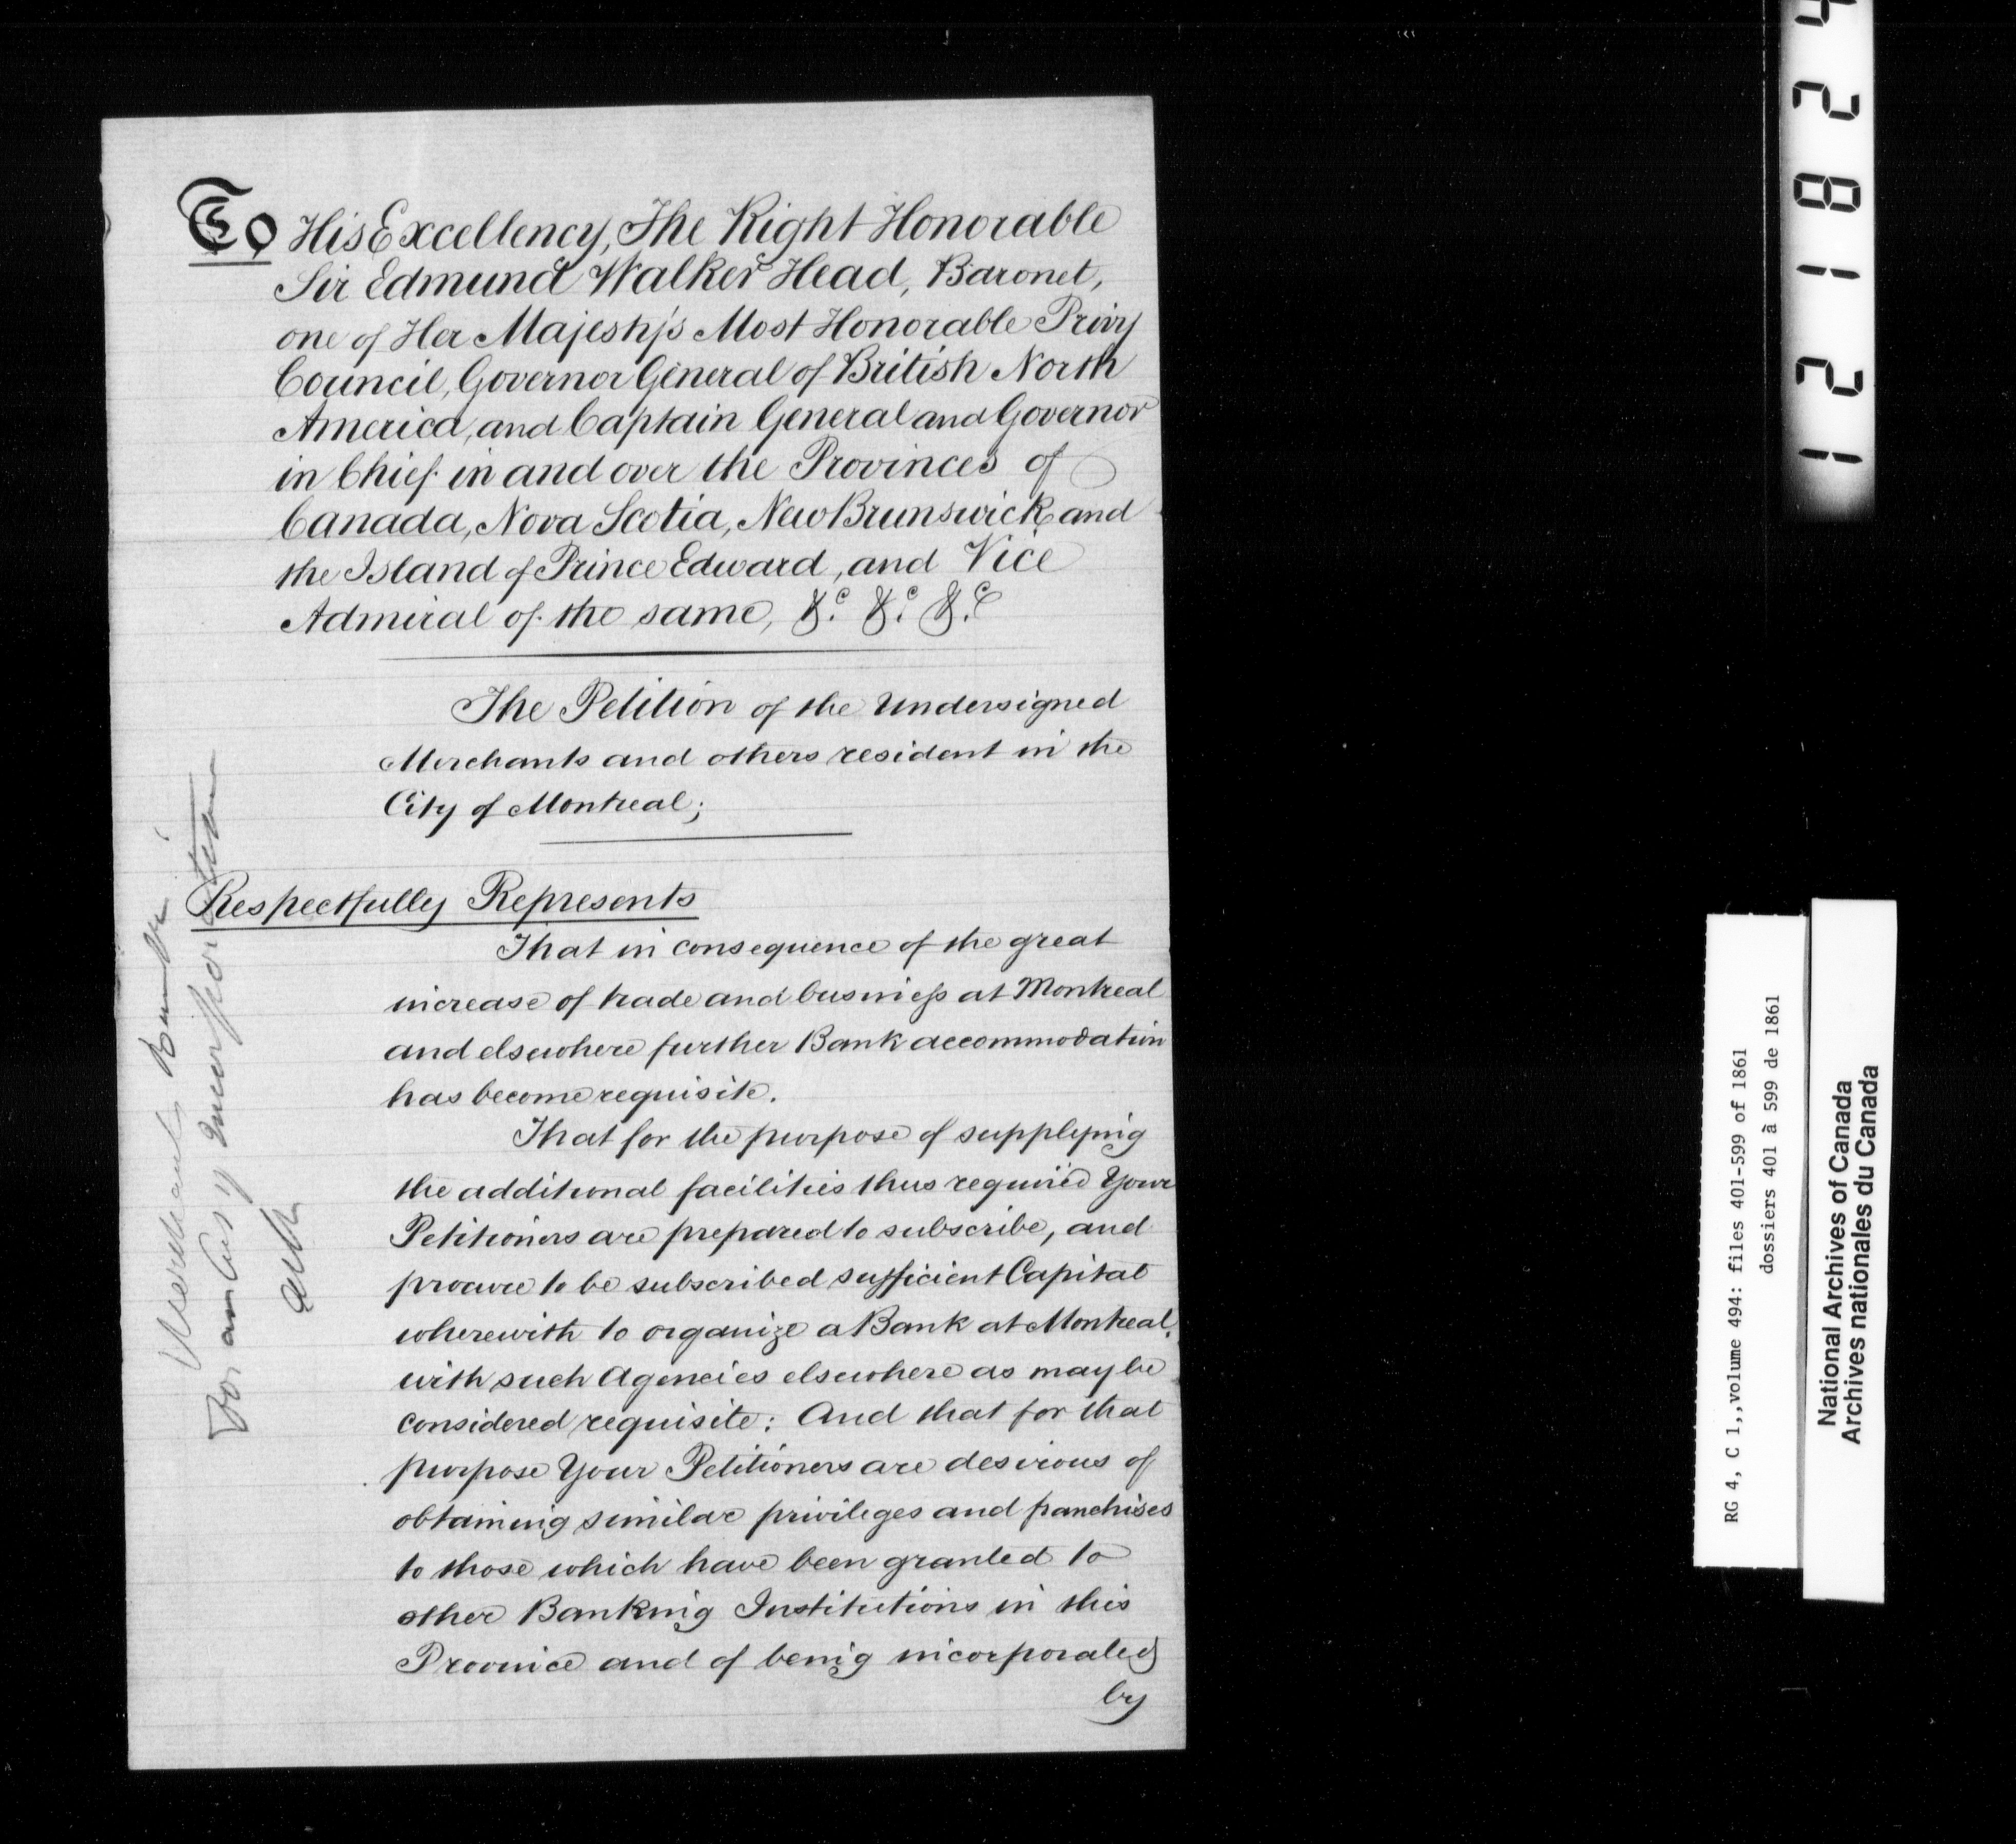 To His Excellency, The Right Honorable
Sir Edmund Walker Head, Baronet,
one of Her Majesty's Most Honorable Privy
Council, Governor General of British North
America, and Captain General and Governor
in Chief in and over the Provinces of
Canada, Nova Scotia, New Brunswick and
the Island of Prince Edward, and Vice
Admiral of the same, &c. &c. &c.
The Petition of the Undersigned
Merchants and others resident in the
City of Montreal;
Respectfully Represents
That in consequence of the great
increase of trade and business at Montreal
and elsewhere further Bank accommodation
has become requisite.
That for the purpose of supplying
the additional facilities thus required Your
Petitioners are prepared to subscribe, and
procure to be subscribed sufficient Capital
wherewith to organize a Bank at Montreal,
with such Agencies elsewhere as may be
considered requisite: And that for that
purpose Your Petitioners are desirous of
obtaining similar privileges and franchises
to those which have been granted to
other Banking Institutions in this
Province and of being incorporated
by
Merchants Bank
For an Act of Incorporation
121824
RG 4, C 1,,volume 494: files 401-599 of 1861
dossiers 401 à 599 de 1861
National Archives of Canada
Archives nationales du Canada